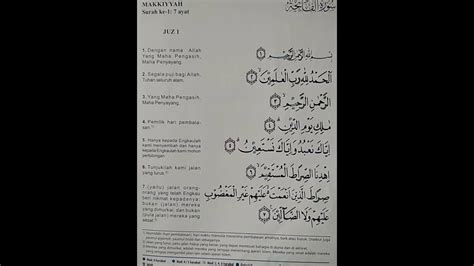 MAKKIYYAH
Surah ke-1: 7 ayat
سُورَةُ الْفَاتِحَةِ
JUZ 1
1. Dengan nama Allah
Yang Maha Pengasih,
Maha Penyayang.
بِسْمِ اللهِ الرَّحْمٰنِ الرَّحِيْمِ ١
2. Segala puji bagi Allah,
Tuhan seluruh alam,
اَلْحَمْدُ لِلّٰهِ رَبِّ الْعٰلَمِيْنَ ٢
3. Yang Maha Pengasih,
Maha Penyayang,
الرَّحْمٰنِ الرَّحِيْمِ ٣
4. Pemilik hari pembala-
san.
مٰلِكِ يَوْمِ الدِّيْنِ ٤
5. Hanya kepada Engkaulah
kami menyembah dan hanya
kepada Engkaulah kami mohon
pertolongan.
اِيَّاكَ نَعْبُدُ وَاِيَّاكَ نَسْتَعِيْنُ ٥
6. Tunjukilah kami jalan
yang lurus,
اِهْدِنَا الصِّرَاطَ الْمُسْتَقِيْمَ ٦
7. (yaitu) jalan orang-
orang yang telah Engkau
beri nikmat kepadanya;
bukan (jalan) mereka
yang dimurkai, dan bukan
(pula jalan) mereka yang
sesat.
صِرَاطَ الَّذِيْنَ اَنْعَمْتَ عَلَيْهِمْ غَيْرِ الْمَغْضُوْبِ
عَلَيْهِمْ وَلَا الضَّالِّيْنَ ٧